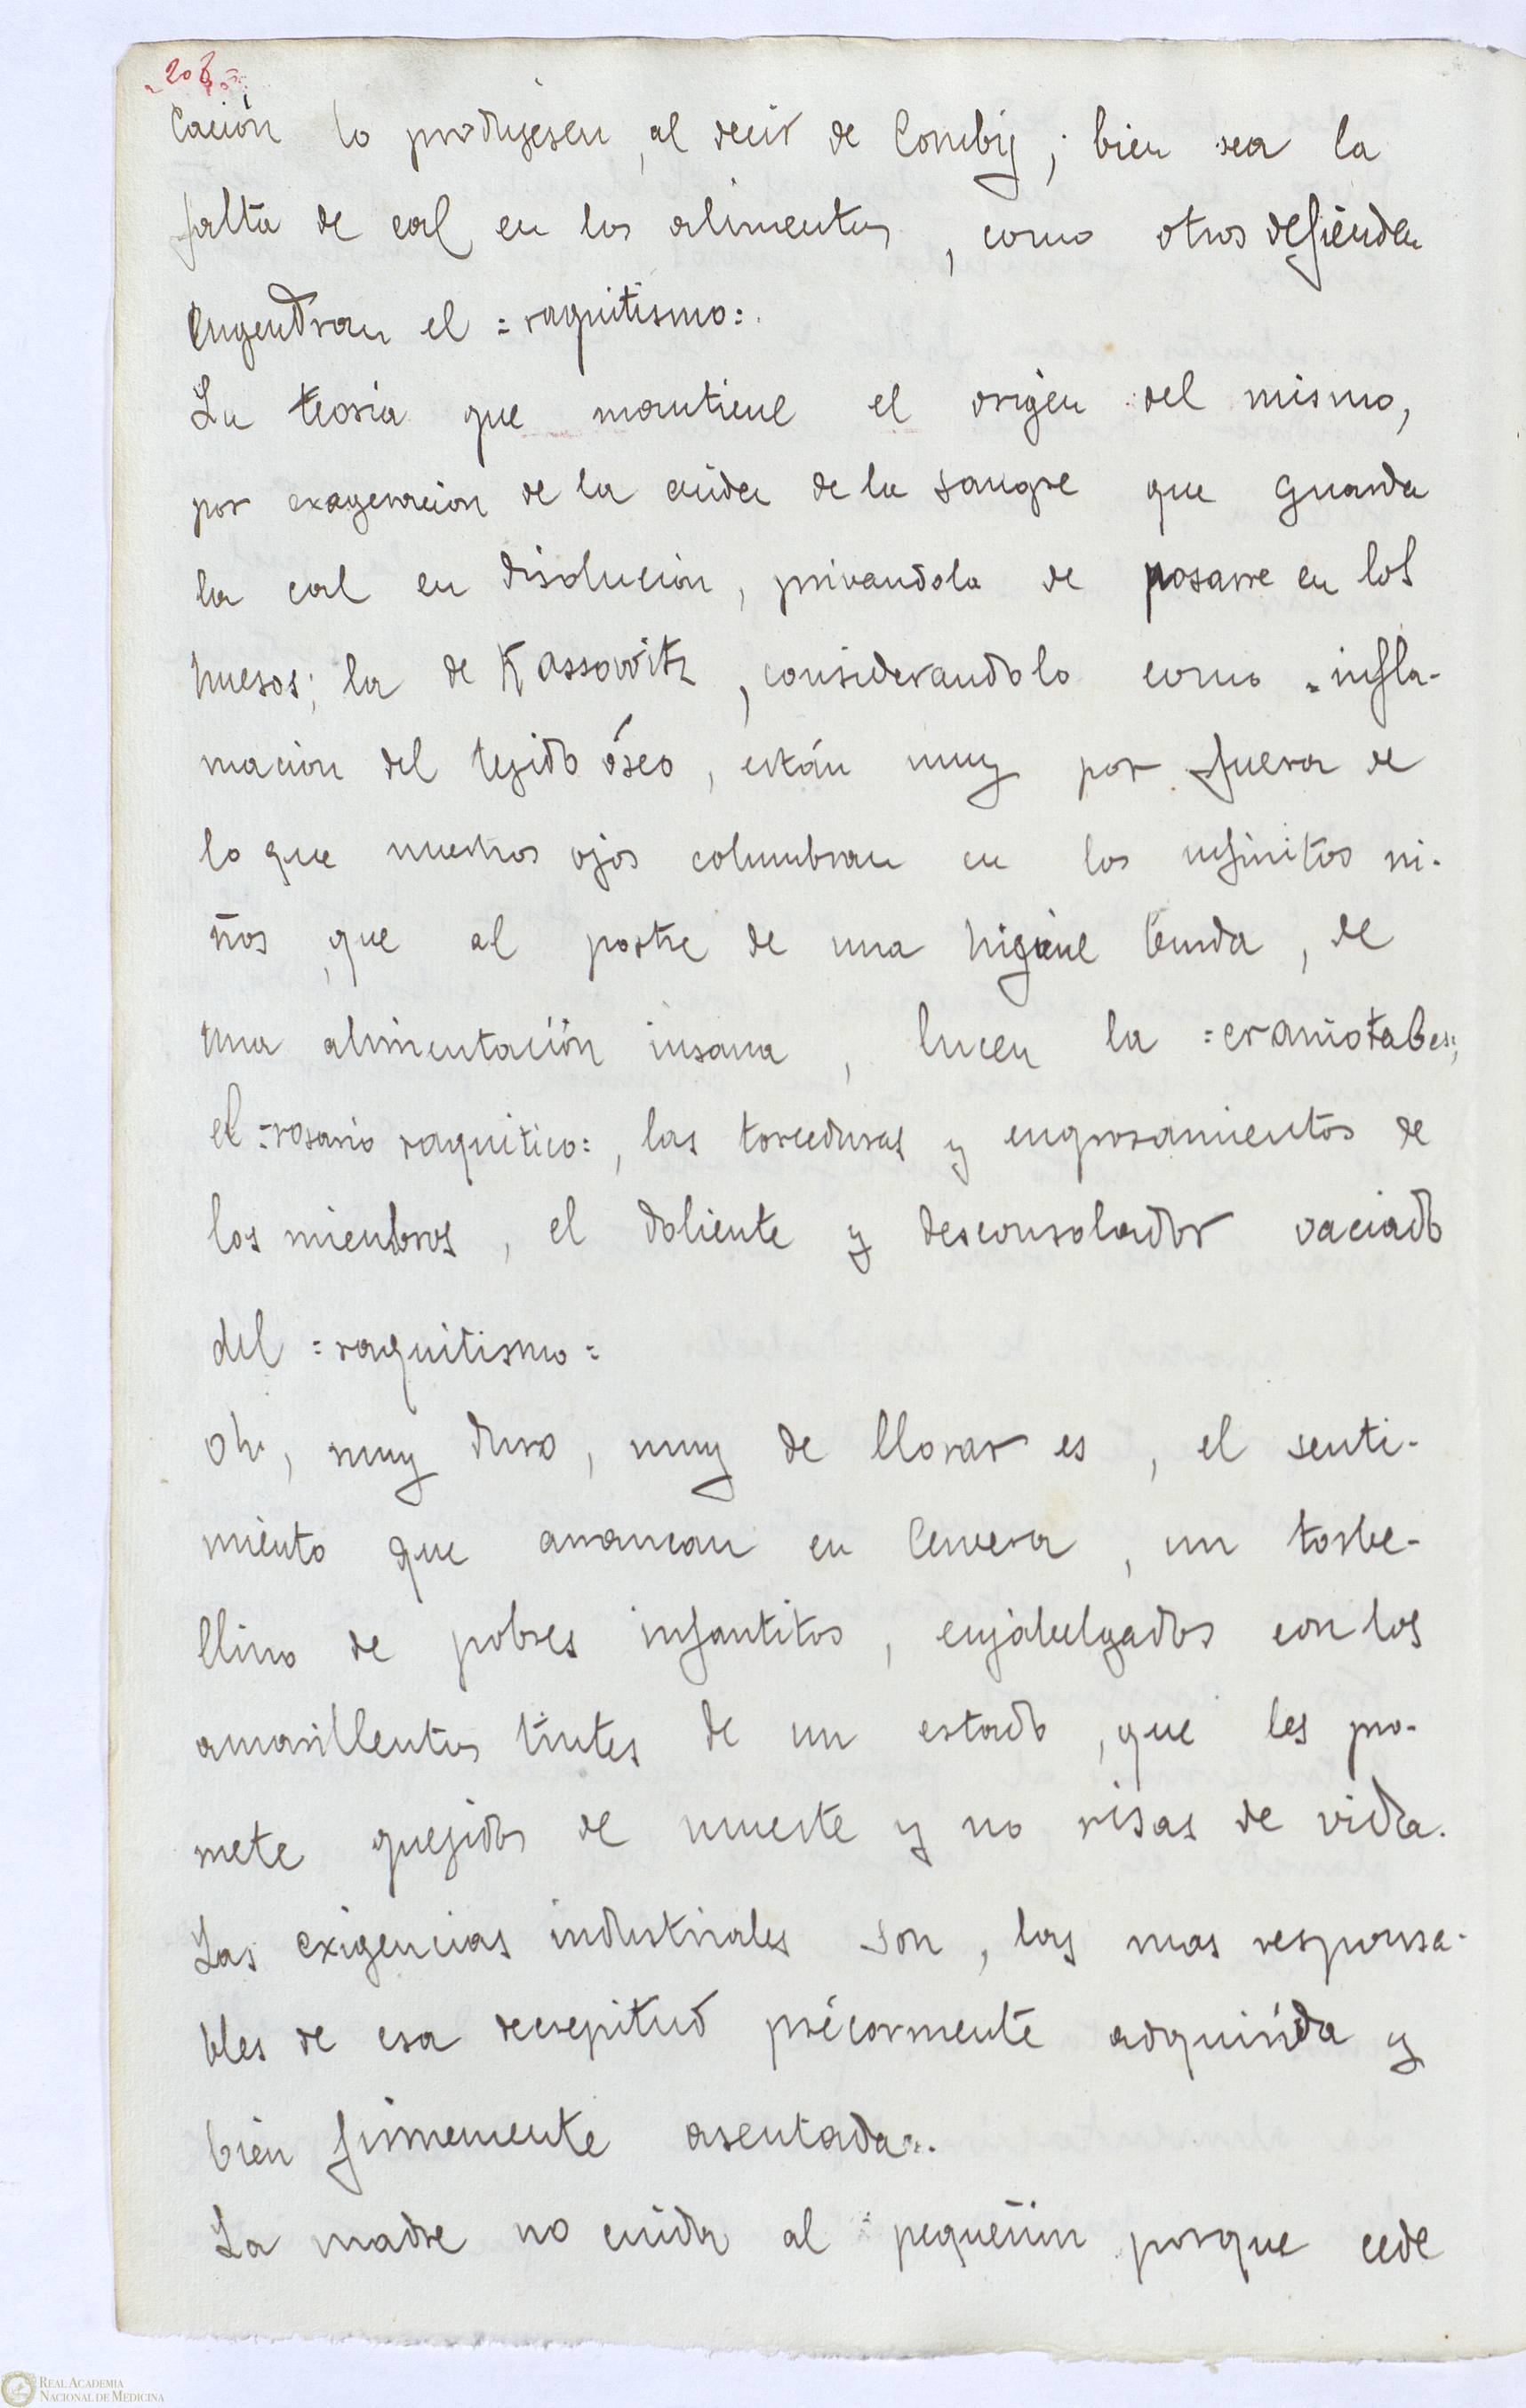 208
cación lo produjesen, al decir de Comby; bien sea la
falta de cal en los alimentos, como otros defienden
engendran el =raquitismo=.
La teoria que mantiene el origen del mismo,
por exageracion de la acidez de la sangre que guarda
la cal en disolución, privandola de posarse en los
huesos; la de Kassowitz, considerandolo como =infla-
macion del tejido óseo, están muy por fuera de
lo que nuestros ojos columbran en los infinitos ni-
ños que al postre de una higiene, de
una alimentación insana, lucen la =craniotabes=,
el =rosario raquitico=, las torceduras y engrosamientos de
los miembros, el doliente y desconsolador vaciado
del =raquitismo=
Oh, muy duro, muy de llorar es, el senti-
miento que arrancan en Cervera, un torbe-
llino de pobres infantitos, enjalbegados con los
amarillentos tintes de un estado, que les pro-
mete quejidos de muerte y no risas de vida.
Las exigencias industriales son, las mas responsa-
bles de esa decrepitud précormente adquirida y
bien firmemente asentada.
La madre no cuida al pequeñin porque cede
REAL ACADEMIA
NACIONAL DE MEDICINA